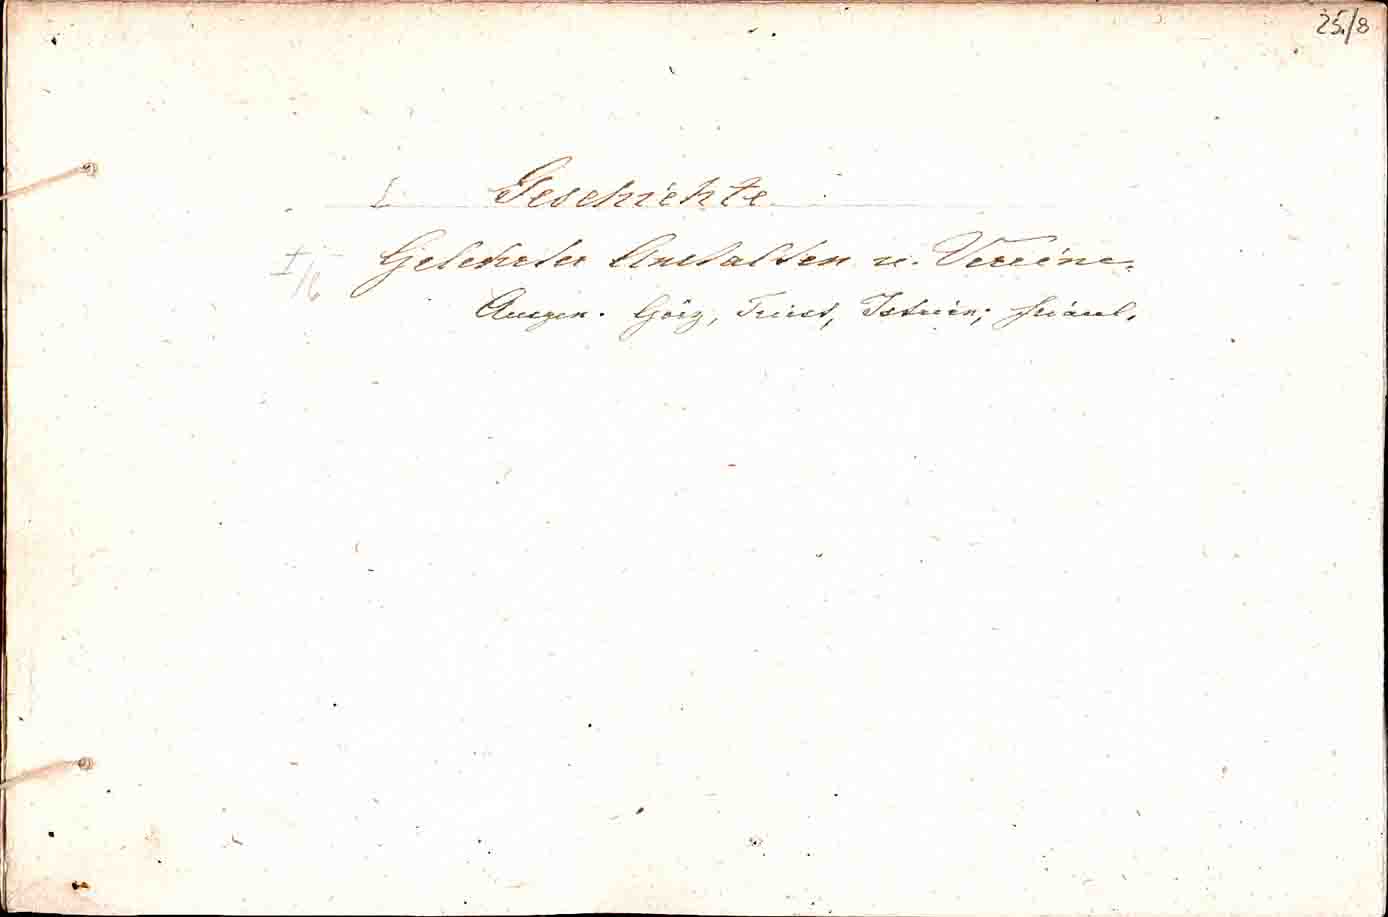 25./8
I Geschichte
I/6 Gelehrter Anstalten u. Vereine.
Görz, Triest, Istrien;